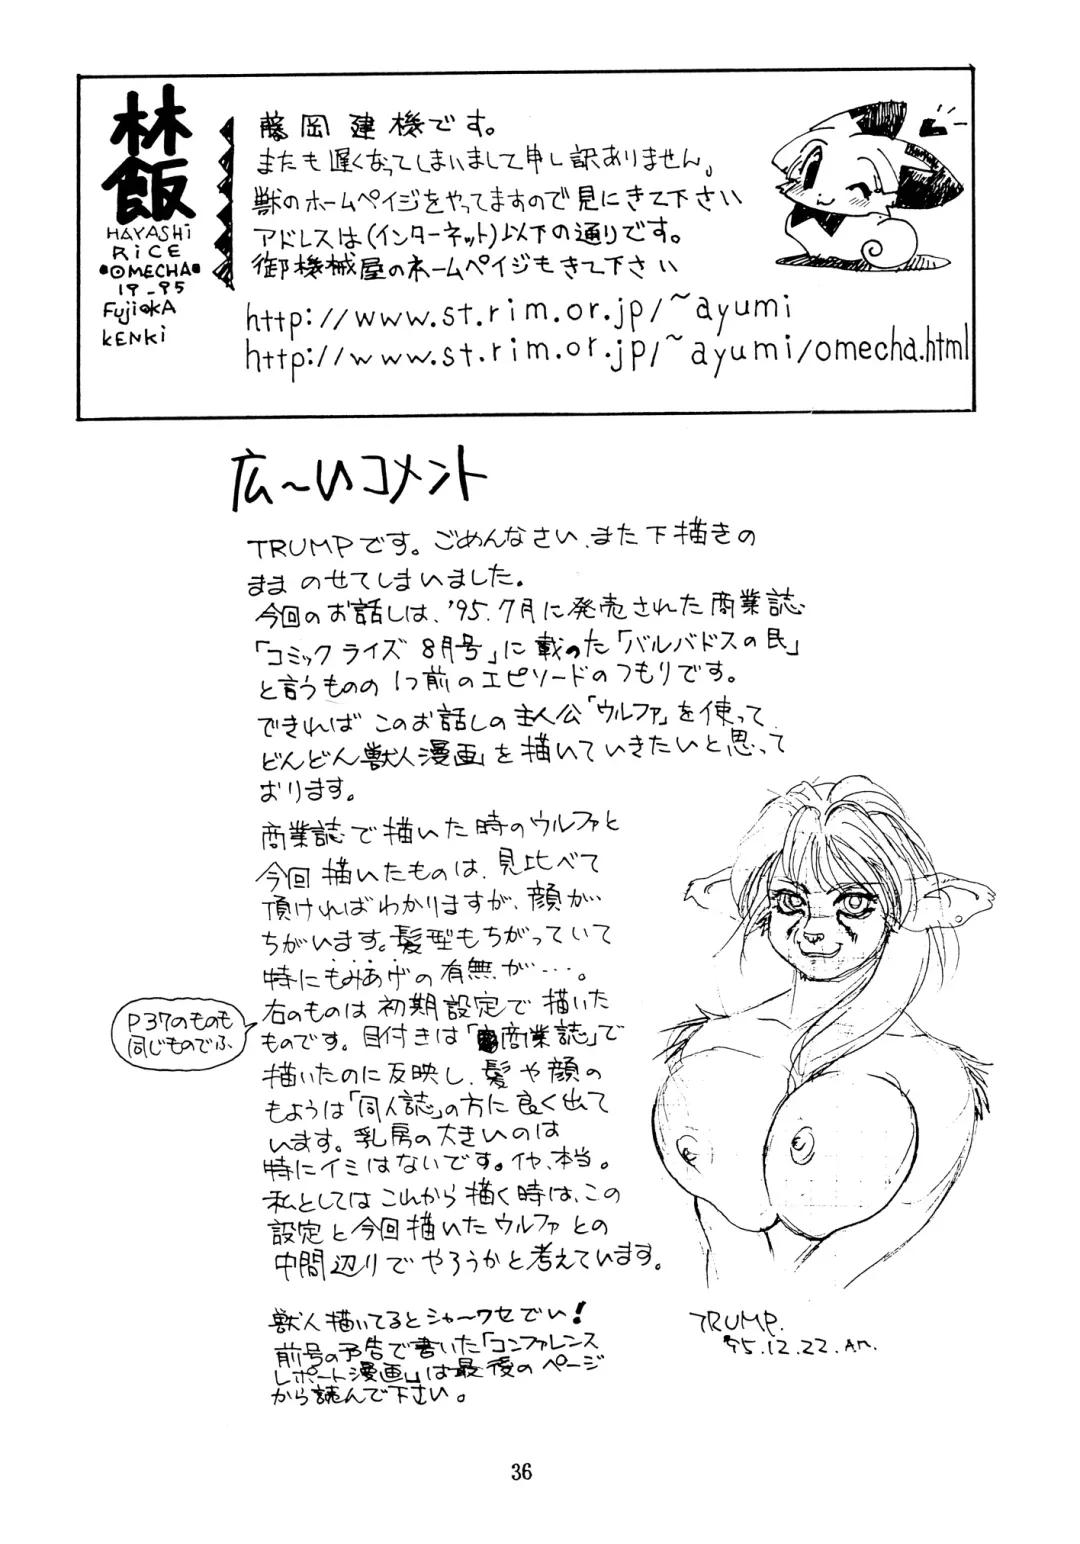 林飯
HAYASHI
RiCE
•OMECHA•
19-95
FujiokA
kENki
藤岡建機です。
またも遅くなってしまいまして申し訳ありません。
獣のホームペイジをやってますので見にきて下さい
アドレスは(インターネット)以下の通りです。
御機械屋のホームペイジもきて下さい
http://www.st.rim.or.jp/~ayumi
http://www.st.rim.or.jp/~ayumi/omecha.html
広〜いコメント
TRUMPです。ごめんなさい、また下描きの
ままのせてしまいました。
今回のお話しは、'95.7月に発売された商業誌
「コミックライズ 8月号」に載った「バルバドスの民」
と言うものの1つ前のエピソードのつもりです。
できればこのお話しの主人公「ウルファ」を使って
どんどん獣人漫画を描いていきたいと思って
おります。
商業誌で描いた時のウルファと
今回描いたものは、見比べて
頂ければわかりますが、顔が…
ちがいます。髪型もちがっていて
特にもみあげの有無が…。
右のものは初期設定で描いた
ものです。目付きは「商業誌」で
描いたのに反映し、髪や顔の
もようは「同人誌」の方に良く出て
います。乳房の大きいのは
特にイミはないです。イヤ、本当。
私としてはこれから描く時は、この
設定と今回描いたウルファとの
中間辺りでやろうかと考えています。
P37のものも
同じものでふ
獣人描いてるとシャーワセでい!
前号の予告で書いた「コンファレンス
レポート漫画」は最後のページ
から読んで下さい。
TRUMP.
'95.12.22.AM.
36